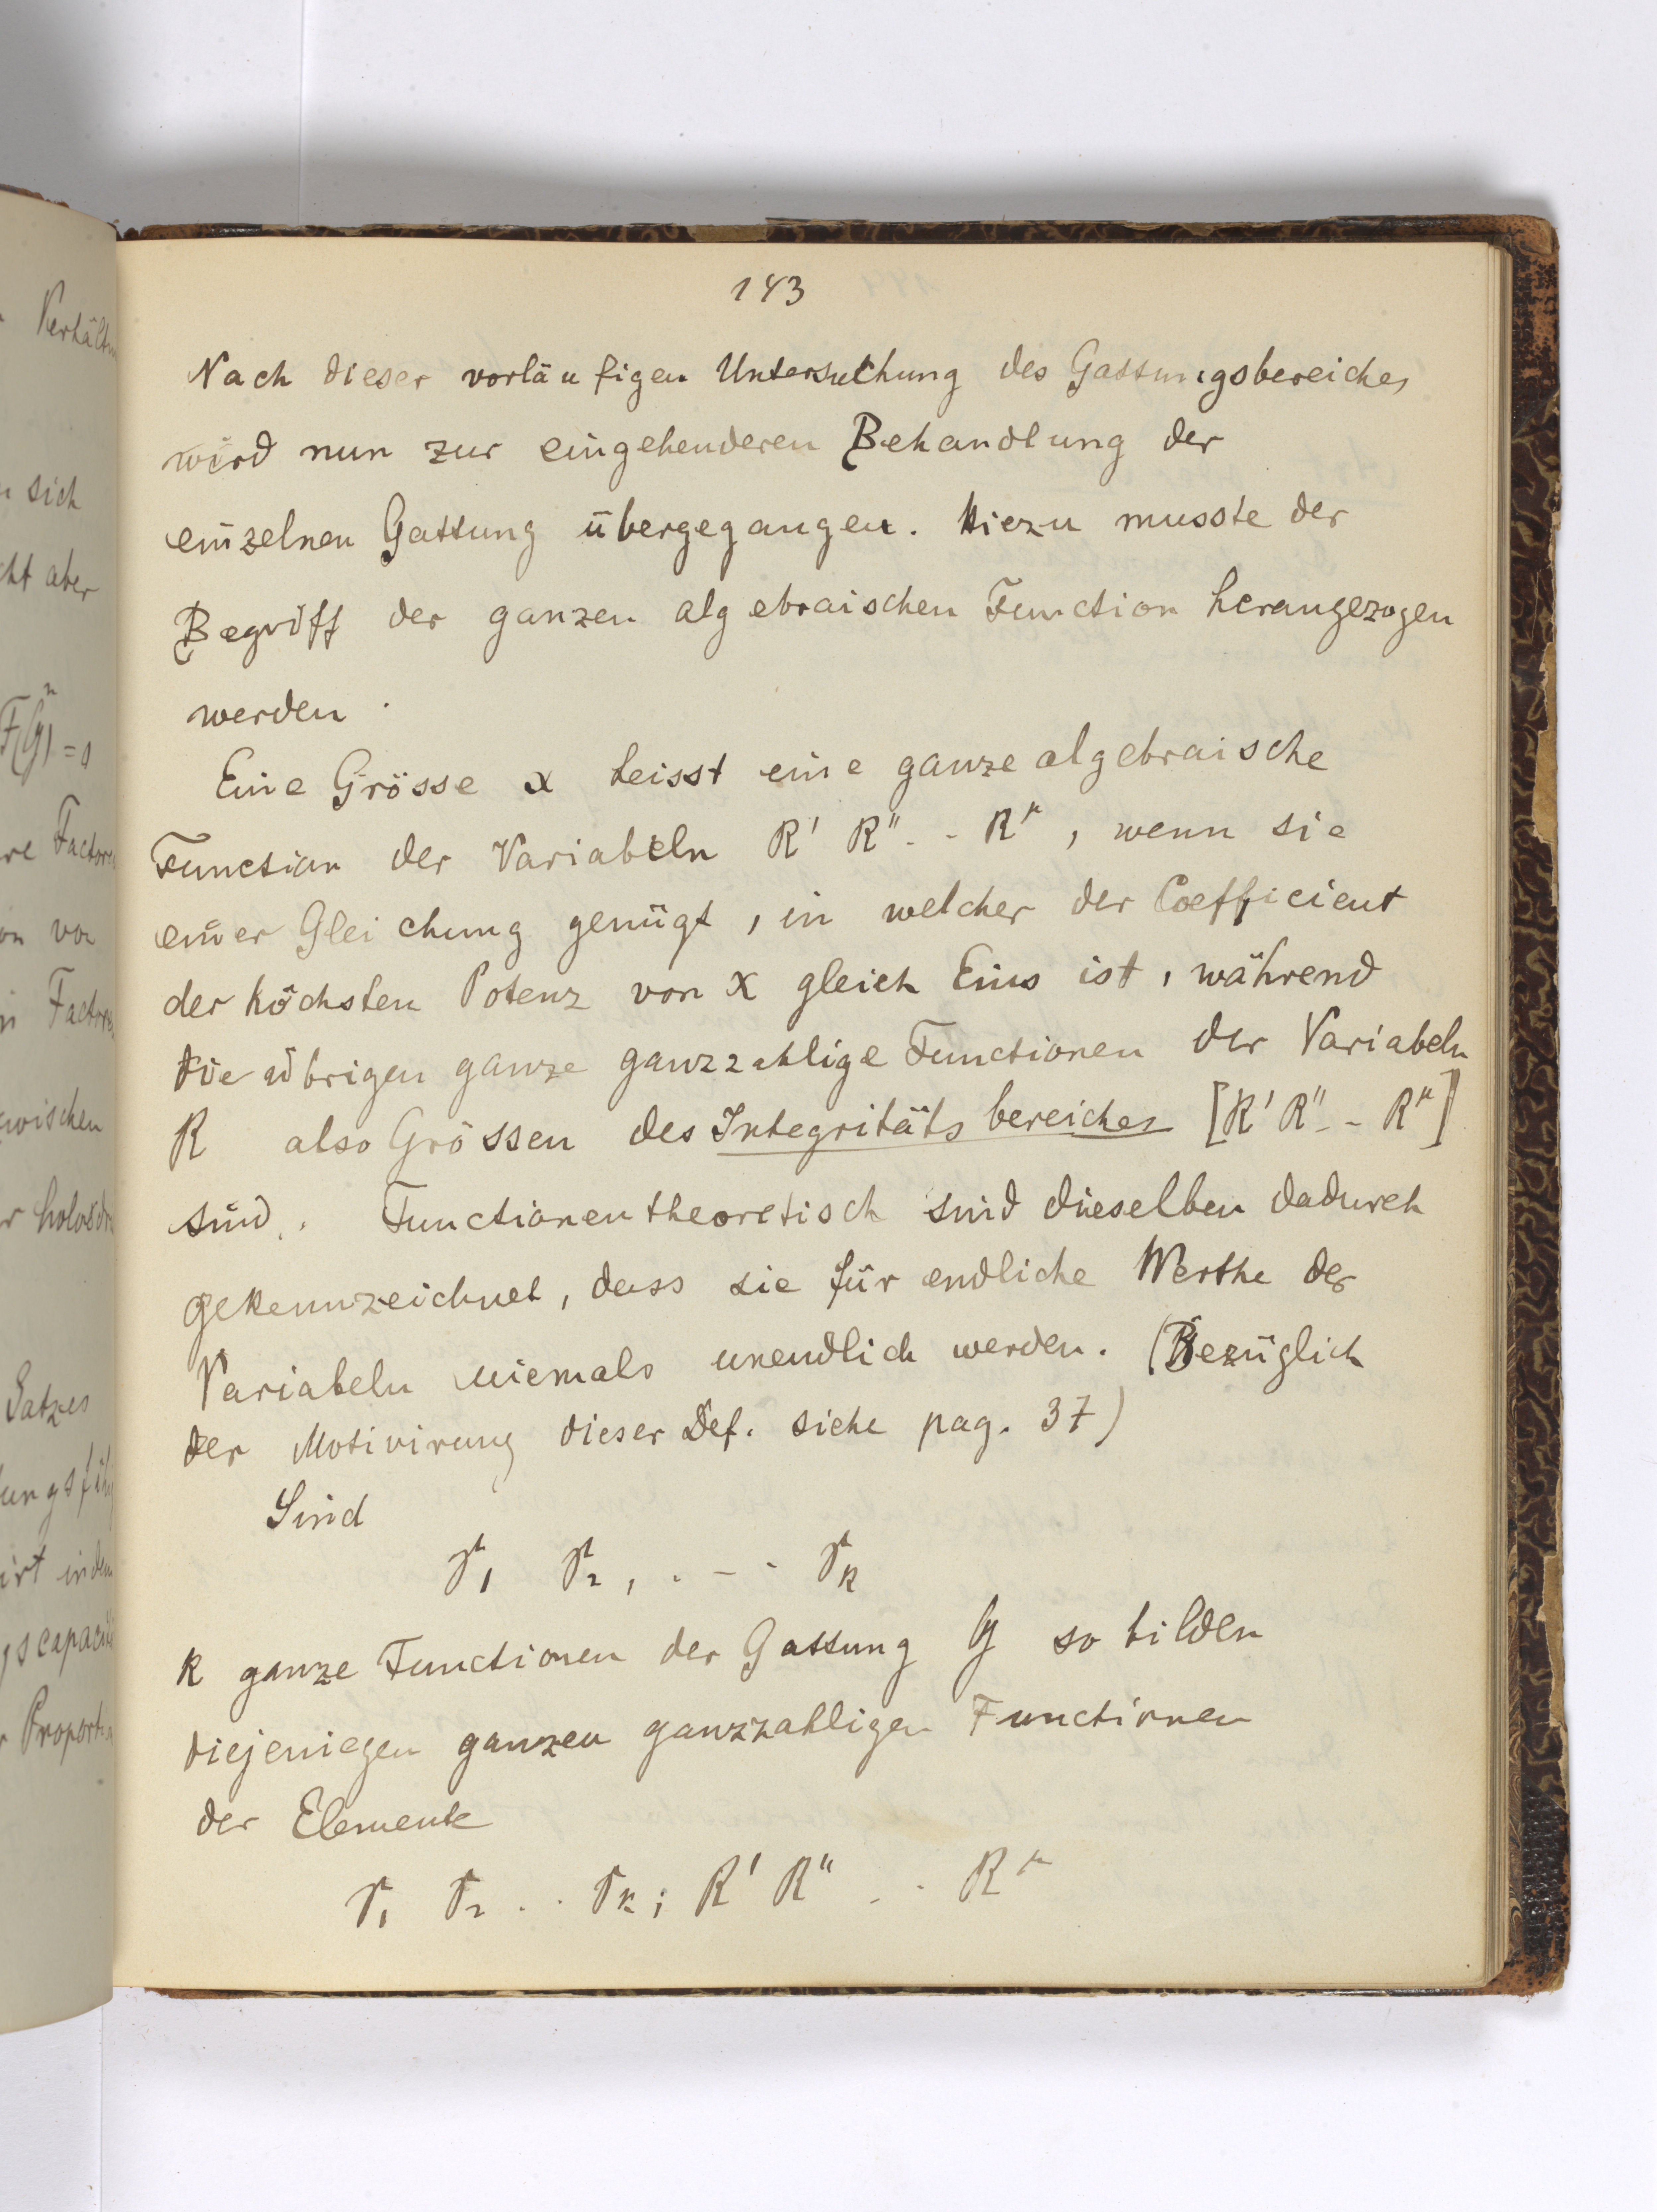 143
Nach dieser vorläufigen Untersuchung des Gattungsbereiches
wird nun zur eingehenderen Behandlung der
einzelnen Gattung übergegangen. Hiezu musste der
Begriff der ganzen algebraischen Function herangezogen
werden.
Eine Grösse x heisst eine ganze algebraische
Function der Variabeln R' R'' - - R^μ, wenn sie
einer Gleichung genügt, in welcher der Coefficient
der höchsten Potenz von x gleich Eins ist, während
die übrigen ganze ganzzahlige Functionen der Variabeln
R also Grössen des Integritätsbereiches [R' R'' - - R^μ]
sind. Functionentheoretisch sind dieselben dadurch
gekennzeichnet, dass sie für endliche Werthe der
Variabeln niemals unendlich werden. (Bezüglich
der Motivirung dieser Def. siehe pag. 37)
Sind
r₁ r₂, . - - rₖ
k ganze Functionen der Gattung G so bilden
diejeniegen ganzen ganzzahligen Functionen
der Elemente
r₁ r₂ . . rₖ; R' R'' . . R^μ
Verhältn
sich
cht aber
F(G) = 0
Factoren
on von
in Factoren
zwischen
Satzes
irt in dem
Proport